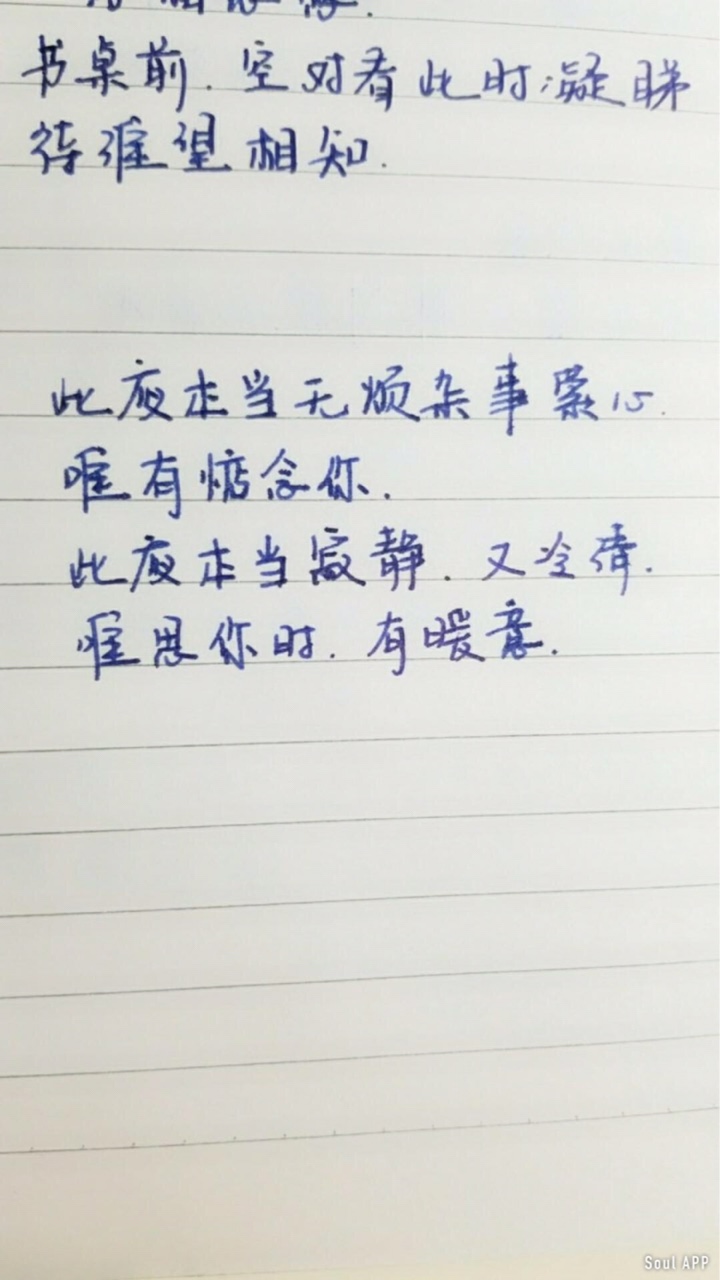 书桌前. 空对着此时凝睇
待谁望相知.
此夜本当无烦杂事累心.
唯有惦念你.
此夜本当寂静. 又冷清.
唯思你时. 有暖意.
Soul APP